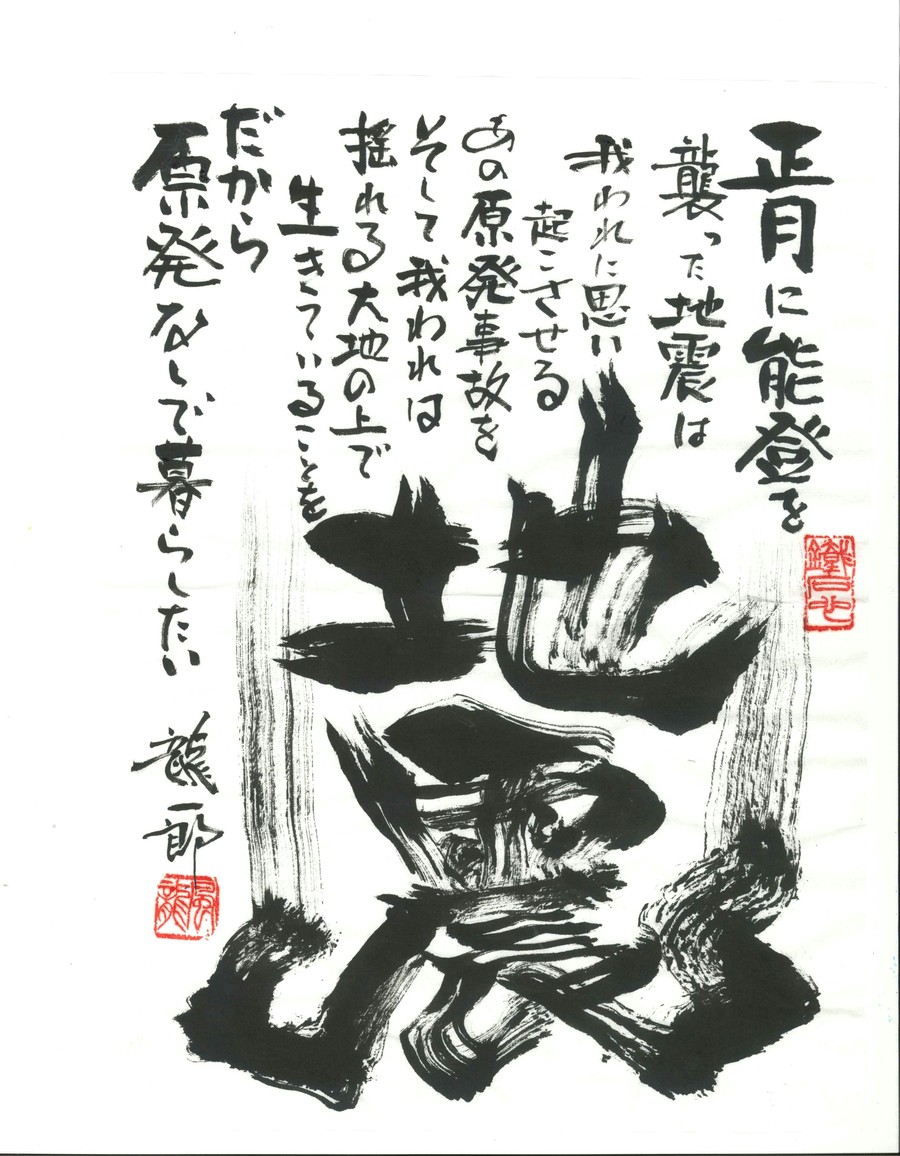 正月に能登を
襲った地震は
我われに思い
起こさせる
あの原発事故を
そして我われは
揺れる大地の上で
生きていることを
だから
原発なしで暮らしたい
龍一郎
地震